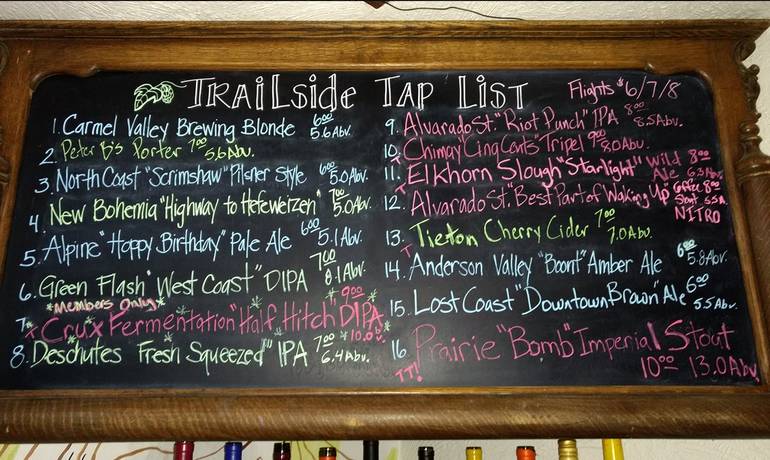 TRAILSide TAP LIST
Flights $6/7/8
1. Carmel Valley Brewing Blonde 6.00 5.6 Abv.
2. Peter B's Porter 7.00 5.6 Abv.
3. North Coast "Scrimshaw" Pilsner Style 6.00 5.0 Abv.
4. New Bohemia "Highway to Hefeweizen" 7.00 5.0 Abv.
5. Alpine "Happy Birthday" Pale Ale 6.00 5.1 Abv.
6. Green Flash "West Coast" DIPA 7.00 8.1 Abv.
*Members Only*
7. Crux Fermentation "Half Hitch" DIPA 9.00 *10.0v.
8. Deschutes Fresh Squeezed" IPA 7.00 6.4 Abv.
9. Alvarado St. "Riot Punch" IPA 8.00 8.5 Abv.
10. Chimay "Cinq Cents" Tripel 9.00 8.0 Abv.
11. T Elkhorn Slough "Starlight" Wild Ale 8.00
12. T Alvarado St. "Best Part of Waking Up Coffee Stout 8.00 NITRO
13. T Tieton Cherry Cider 7.00 7.0 Abv.
14. Anderson Valley "Boont" Amber Ale 6.00 5.8 Abv.
15. Lost Coast "Downtown Brown" Ale 6.00 5.5 Abv.
16. TT! Prairie "Bomb" Imperial Stout
10.00 13.0 Abv.